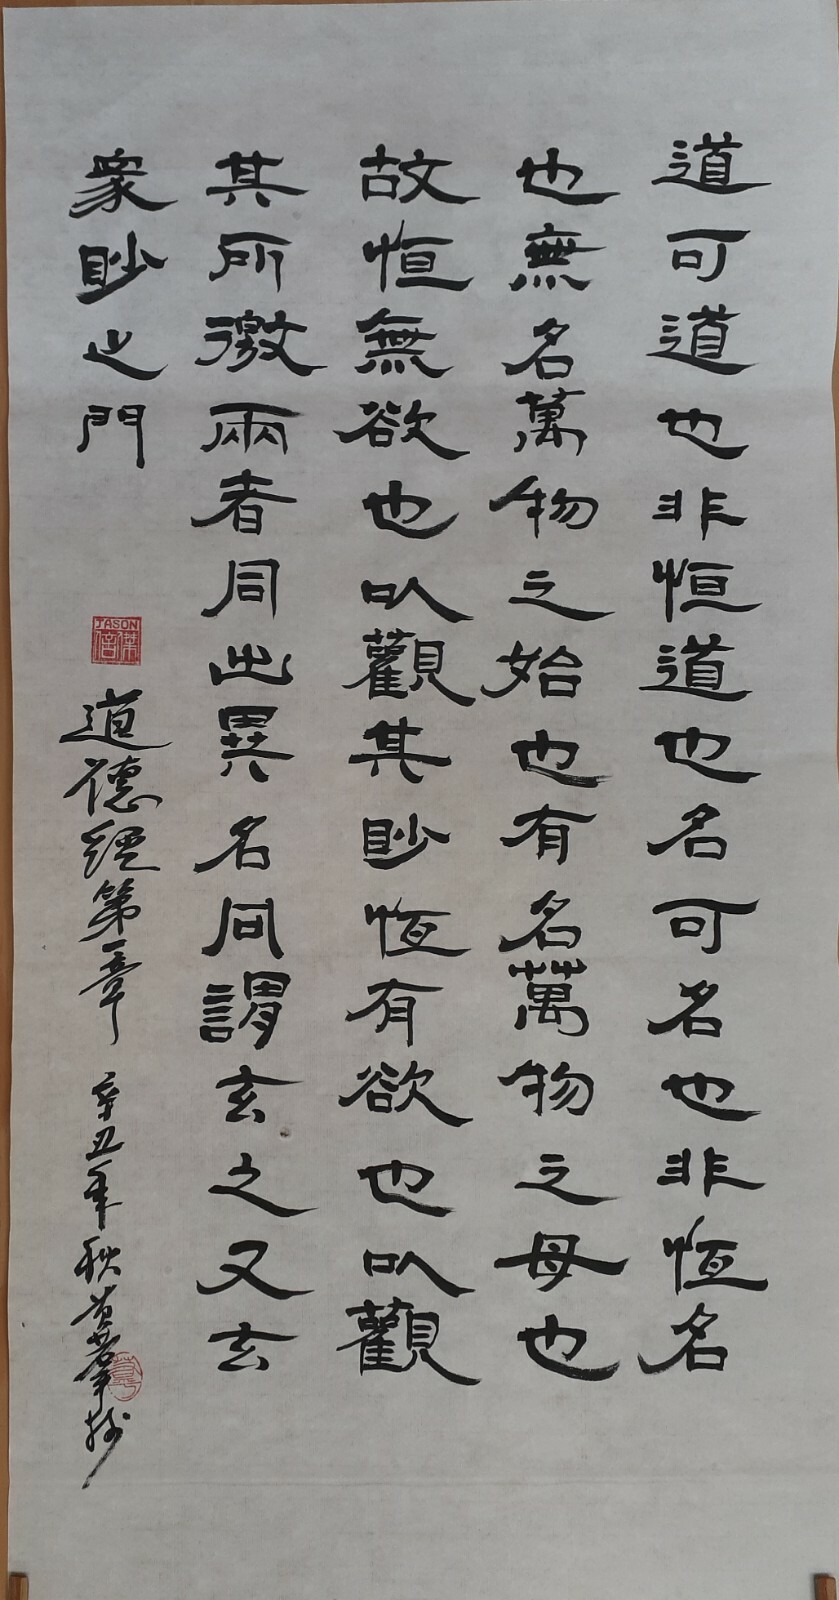 道可道也非恒道也名可名也非恆名
也無名萬物之始也有名萬物之母也
故恒無欲也以觀其眇恆有欲也以觀
其所徼兩者同出異名同謂玄之又玄
眾眇之門
JASON
道德經第一章
辛丑年秋黃